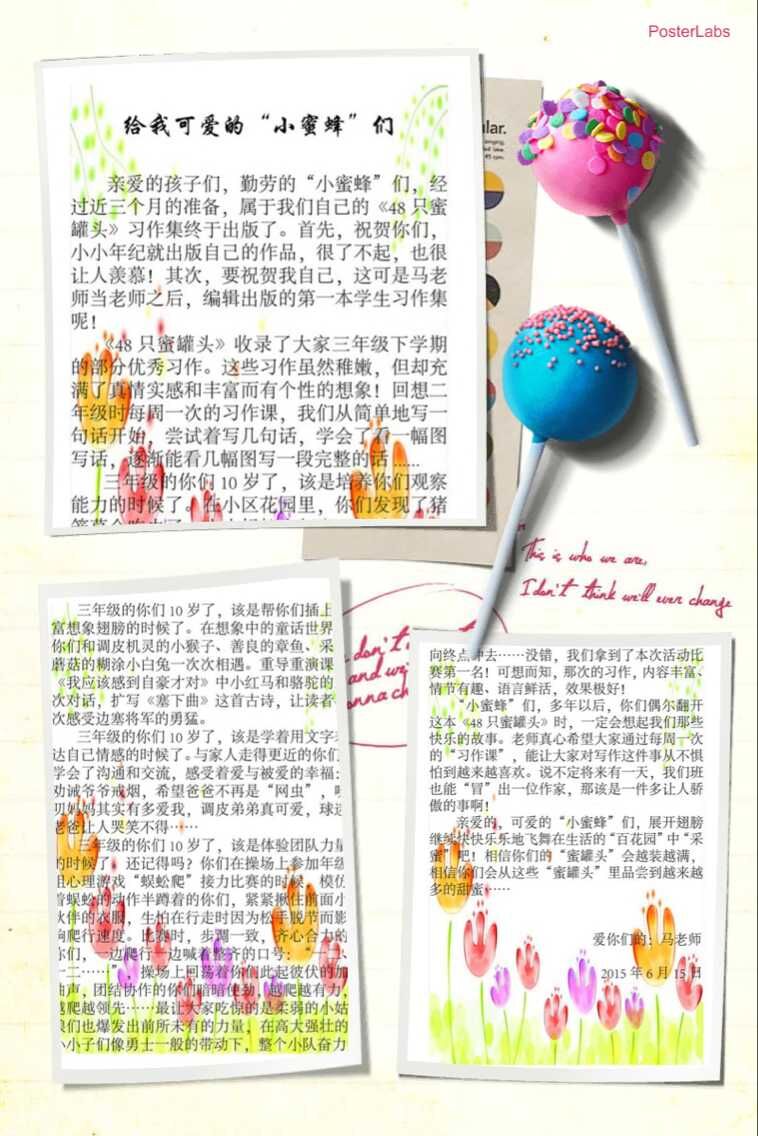 PosterLabs
给我可爱的“小蜜蜂”们
亲爱的孩子们，勤劳的“小蜜蜂”们，经
过近三个月的准备，属于我们自己的《48 只蜜
罐头》习作集终于出版了。首先，祝贺你们，
小小年纪就出版自己的作品，很了不起，也很
让人羡慕！其次，要祝贺我自己，这可是马老
师当老师之后，编辑出版的第一本学生习作集
呢！
《48 只蜜罐头》收录了大家三年级下学期
的部分优秀习作。这些习作虽然稚嫩，但却充
满了真情实感和丰富而有个性的想象！回想二
年级时每周一次的习作课，我们从简单地写一
句话开始，尝试着写几句话，学会了看一幅图
写话，逐渐能看几幅图写一段完整的话......
三年级的你们 10 岁了，该是培养你们观察
能力的时候了。在小区花园里，你们发现了猪
lar.
This is who we are,
I don't think we'll ever change
三年级的你们 10 岁了，该是帮你们插上
富想象翅膀的时候了。在想象中的童话世界
你们和调皮机灵的小猴子、善良的章鱼、采
蘑菇的糊涂小白兔一次次相遇。重导重演课
《我应该感到自豪才对》中小红马和骆驼的
次对话，扩写《塞下曲》这首古诗，让读者
次感受边塞将军的勇猛。
三年级的你们 10 岁了，该是学着用文字表
达自己情感的时候了。与家人走得更近的你们
学会了沟通和交流，感受着爱与被爱的幸福：
劝诫爷爷戒烟，希望爸爸不再是“网虫”，
妈妈其实有多爱我，调皮弟弟真可爱，球迷
老爸让人哭笑不得……
三年级的你们 10 岁了，该是体验团队力量
的时候了。还记得吗？你们在操场上参加年级
组心理游戏“蜈蚣爬”接力比赛的时候，模仿
着蜈蚣的动作半蹲着的你们，紧紧揪住前面小
伙伴的衣服，生怕在行走时因为松手脱节而影
响爬行速度。比赛时，步调一致，齐心合力的
你们，一边爬行一边喊着整齐的口号：“一二、
一二……”，操场上回荡着你们此起彼伏的加
油声，团结协作的你们暗暗使劲，越爬越有力，
越爬越领先……最让大家吃惊的是柔弱的小姑
娘们也爆发出前所未有的力量，在高大强壮的
小小子们像勇士一般的带动下，整个小队奋力
向终点冲去……没错，我们拿到了本次活动比
赛第一名！可想而知，那次的习作，内容丰富、
情节有趣、语言鲜活，效果极好！
“小蜜蜂”们，多年以后，你们偶尔翻开
这本《48 只蜜罐头》时，一定会想起我们那些
快乐的故事。老师真心希望大家通过每周一次
的“习作课”，能让大家对写作这件事从不惧
怕到越来越喜欢。说不定将来有一天，我们班
也能“冒”出一位作家，那该是一件多让人骄
傲的事啊！
亲爱的，可爱的“小蜜蜂”们，展开翅膀
继续快快乐乐地飞舞在生活的“百花园”中“采
蜜”吧！相信你们的“蜜罐头”会越装越满，
相信你们会从这些“蜜罐头”里品尝到越来越
多的甜蜜……
爱你们的：马老师
2015 年 6 月 15 日